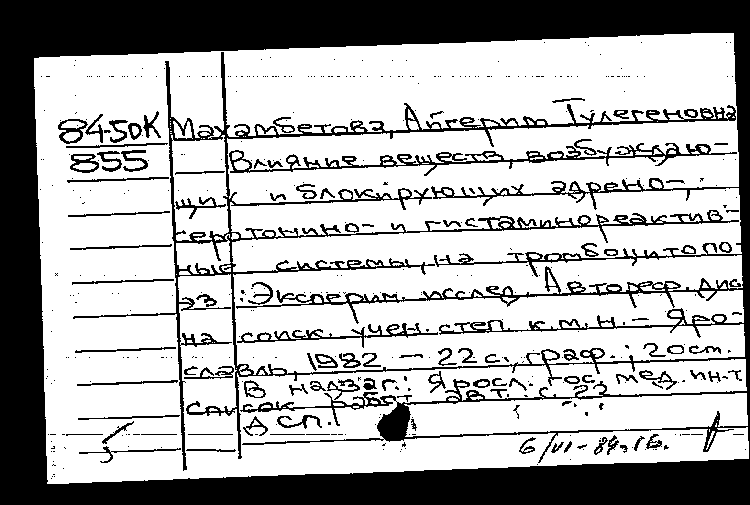 84-50К Махамбетова, Айгерим Тулегеновна
855 Влияние веществ, возбуждаю-
щих и блокирующих адрено-,
серотонино- и гистаминореактив-
ные системы, на тромбоцитопо-
эз : Эксперим. исслед. Автореф. дис.
на соиск. учен. степ. к.м.н. - Яро-
славль, 1982. - 22 с., граф.; 20 см.
В надзаг.: Яросл. гос. мед. ин-т
список работ авт.: с. 22
ДСП.
5
6/VI-84г.